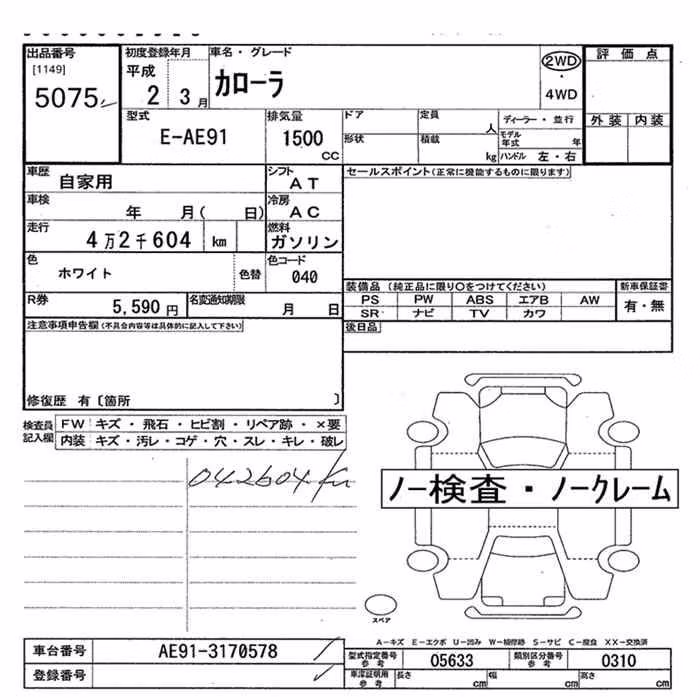 出品番号 初度登録年月 車名・グレード 2WD 評価点
[1149] 平成 カローラ ・
5075 2 3月 4WD
外装 内装
型式 排気量 ドア 定員 人 ディーラー・並行
E-AE91 1500 cc 形状 積載 kg モデル年式 年
ハンドル 左・右
車歴 自家用 シフト AT セールスポイント(正常に機能するものに限ります)
車検 年 月( 日) 冷房 AC
走行 4万2千604 km 燃料 ガソリン
色 ホワイト 色替 色コード 040
装備品(純正品に限り○をつけてください) 新車保証書
R券 5,590円 名変通知期限 月 日 PS PW ABS エアB AW 有・無
SR ナビ TV カワ
注意事項申告欄(不具合内容等は具体的に記入して下さい) 後日品
修復歴 有〔箇所 〕
検査員記入欄 FW キズ・飛石・ヒビ割・リペア跡・×要
内装 キズ・汚レ・コゲ・穴・スレ・キレ・破レ
042604Km
ノー検査・ノークレーム
スペア
A-キズ E-エクボ U-凹み W-補修跡 S-サビ C-腐食 XX-交換済
車台番号 AE91-3170578 型式指定番号 参考 05633 類別区分番号 参考 0310
登録番号 車庫証明用 参考 長さ cm 幅 cm 高さ cm